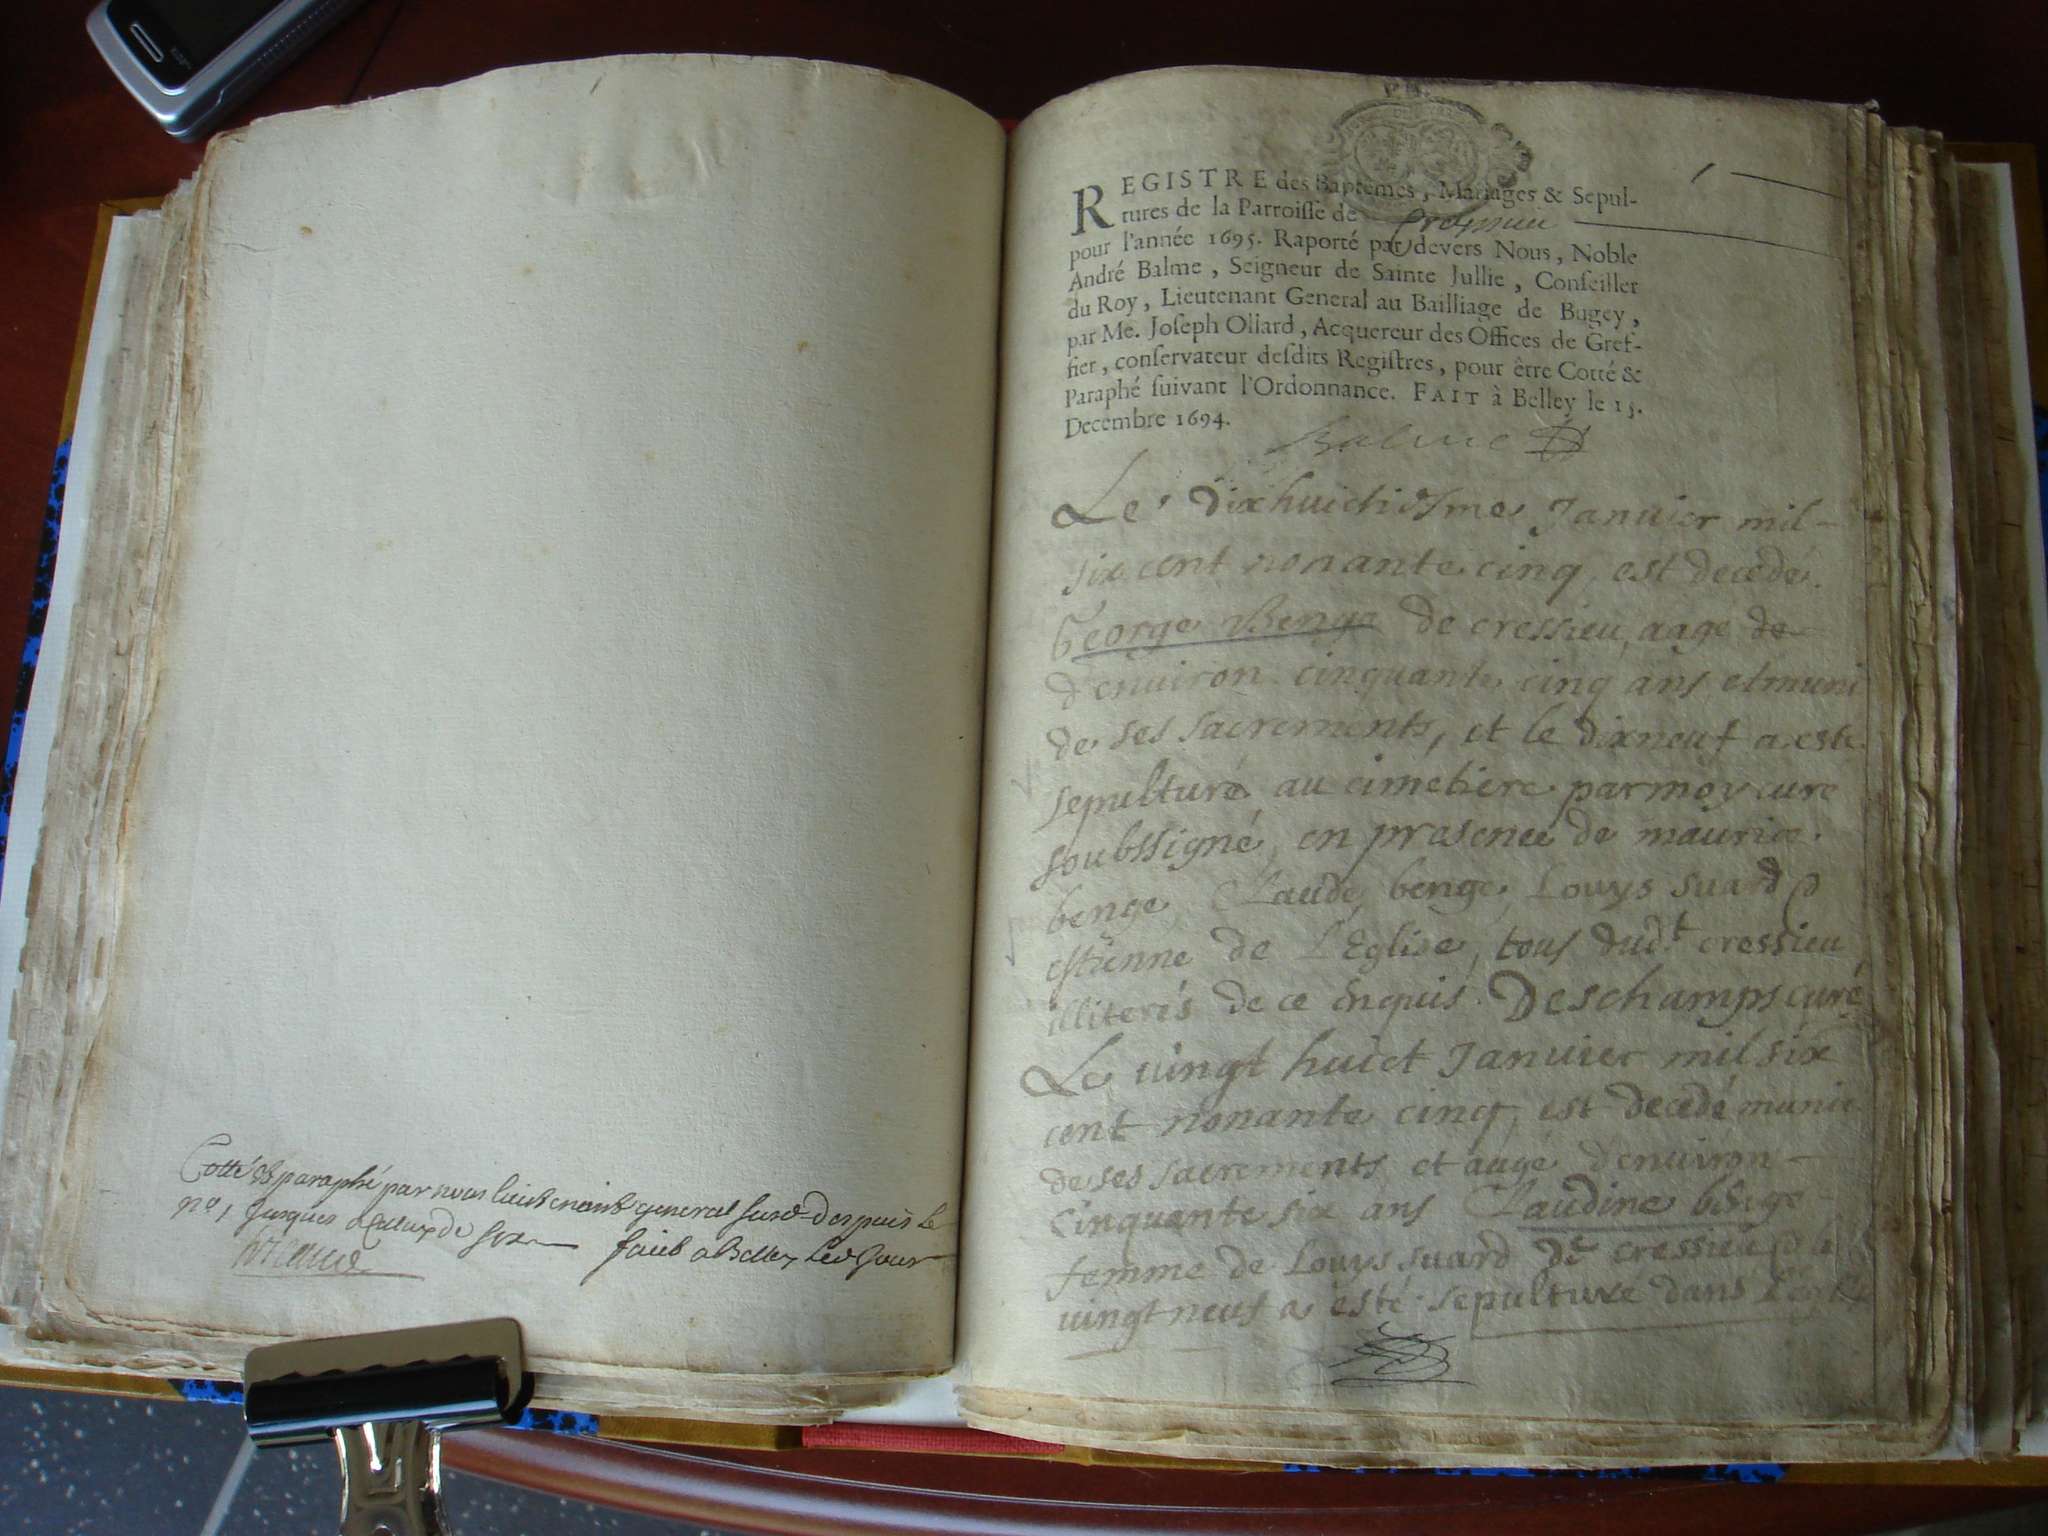 Cotté & paraphé par nous lieutenant general susd. despuis le
n.º 1 jusques a
faict a Belley led. jour
REGISTRE des Baptêmes, Mariages & Sepul-
tures de la Parroisse de Cressieu
pour l'année 1695. Raporté par devers Nous, Noble
André Balme, Seigneur de Sainte Jullie, Conseiller
du Roy, Lieutenant General au Bailliage de Bugey,
par Me. Joseph Ollard, Acquereur des Offices de Gref-
fier, conservateur desdits Registres, pour être Cotté &
Paraphé suivant l'Ordonnance. FAIT à Belley le 15.
Decembre 1694.
Balme
Le dixhuictiesme Januier mil-
six cent nonante cinq est decedé.
George Benge de cressieu, aage de
d'enuiron cinquante cinq ans et muni
de ses sacrements, et le dixneuf a esté
sepulturé au cimetiere par moy curé
soubssigné, en presence de maurice
benge, Claude benge, Louys suard &
estienne de L'Eglise, tous dud.t cressieu
illiterés de ce enquis. Deschamps curé
Le vingt huict Januier mil six
cent nonante cinq, est decedé munie
de ses sacrements et augé d'enuiron
cinquante six ans Claudine benge
femme de Louys suard de cressieu & le
vingt neuf a esté sepulturé dans